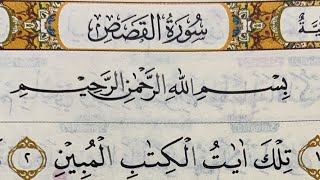 سُورَةُ الْقَصَصِ
بِسْمِ اللهِ الرَّحْمٰنِ الرَّحِيْمِ
تِلْكَ اٰيٰتُ الْكِتٰبِ الْمُبِيْنِ ٢